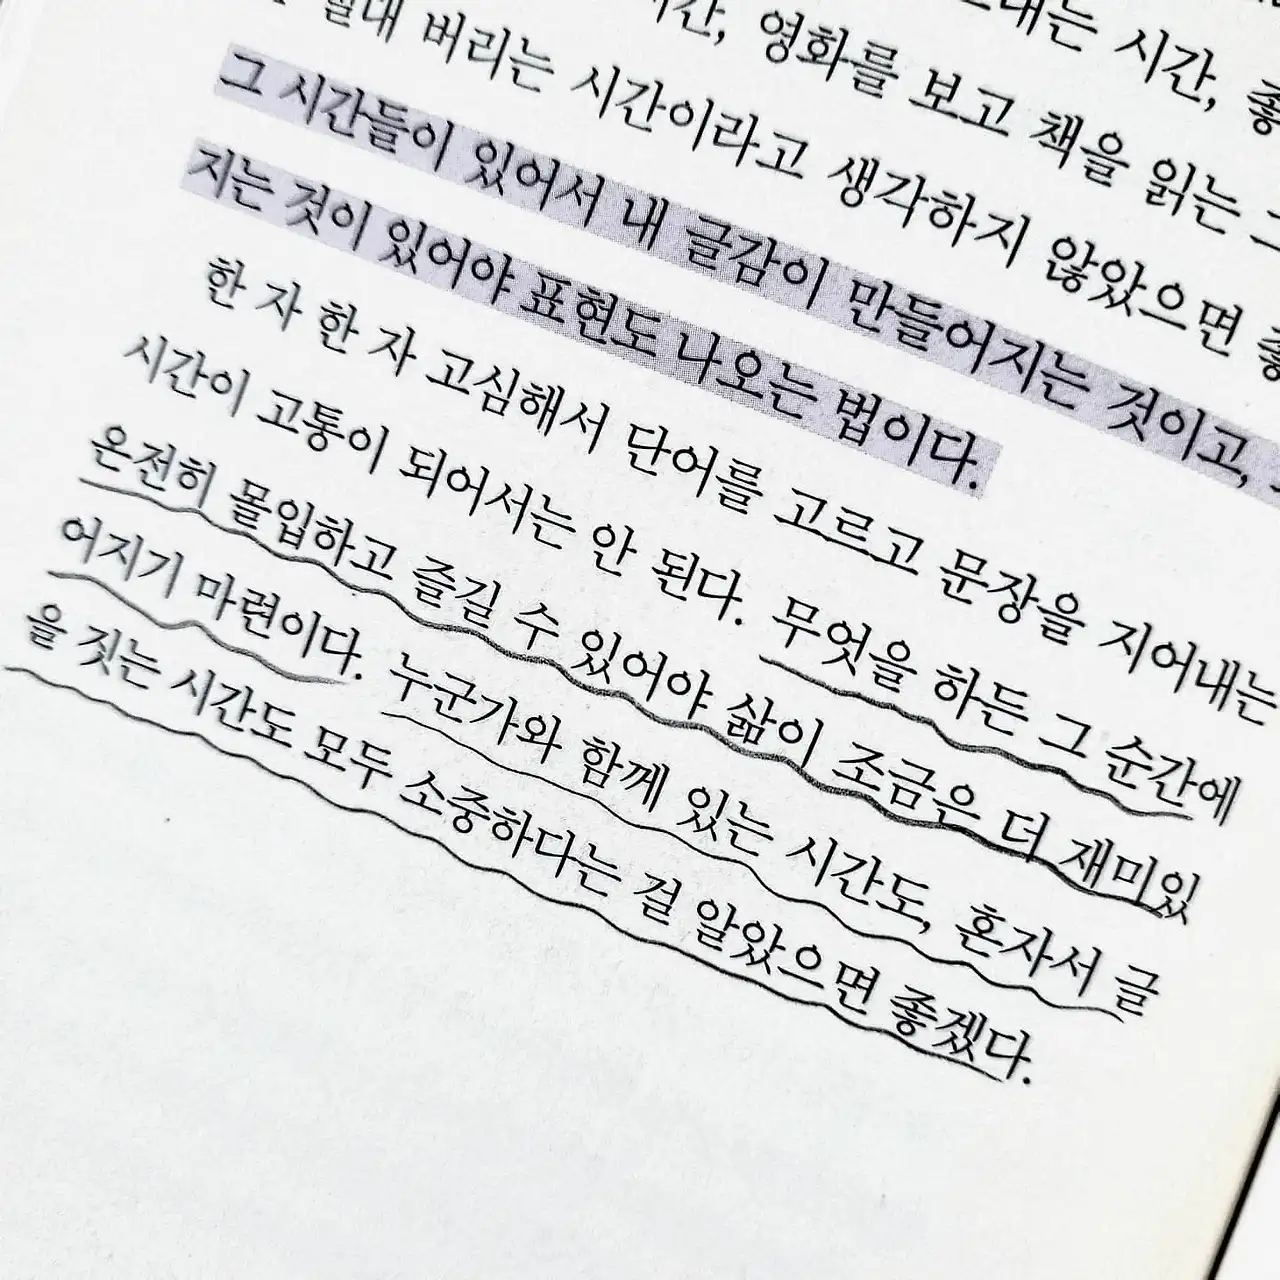 내는 시간,
시간, 영화를 보고 책을 읽는
절대 버리는 시간이라고 생각하지 않았으면
그 시간들이 있어서 내 글감이 만들어지는 것이고,
지는 것이 있어야 표현도 나오는 법이다.
한 자 한 자 고심해서 단어를 고르고 문장을 지어내는
시간이 고통이 되어서는 안 된다. 무엇을 하든 그 순간에
온전히 몰입하고 즐길 수 있어야 삶이 조금은 더 재미있
어지기 마련이다. 누군가와 함께 있는 시간도, 혼자서 글
을 짓는 시간도 모두 소중하다는 걸 알았으면 좋겠다.